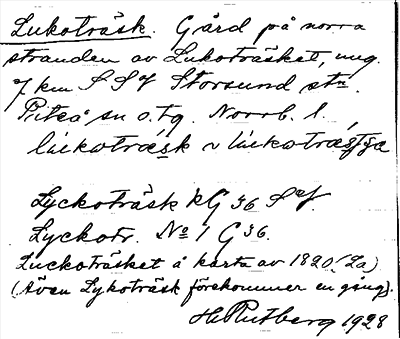 Lukoträsk. Gård på norra
stranden av Lukoträsket, ung.
7 km S S V Storsund stn.
Piteå sn o. tg. Norrb. l.
lúkoträsk v lúkoträsja
Lyckoträsk kG 36 SV.
Lyckotr. No 1 G 36.
Luckoträsket å karta av 1820 (La)
(Även Lykoträsk förekommer en gång).
H. Rutberg 1928